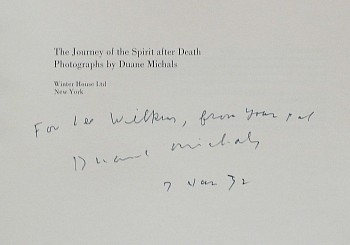 The Journey of the Spirit after Death
Photographs by Duane Michals
Winter House Ltd
New York
For Leo Wilkins, from your pal
Duane Michals